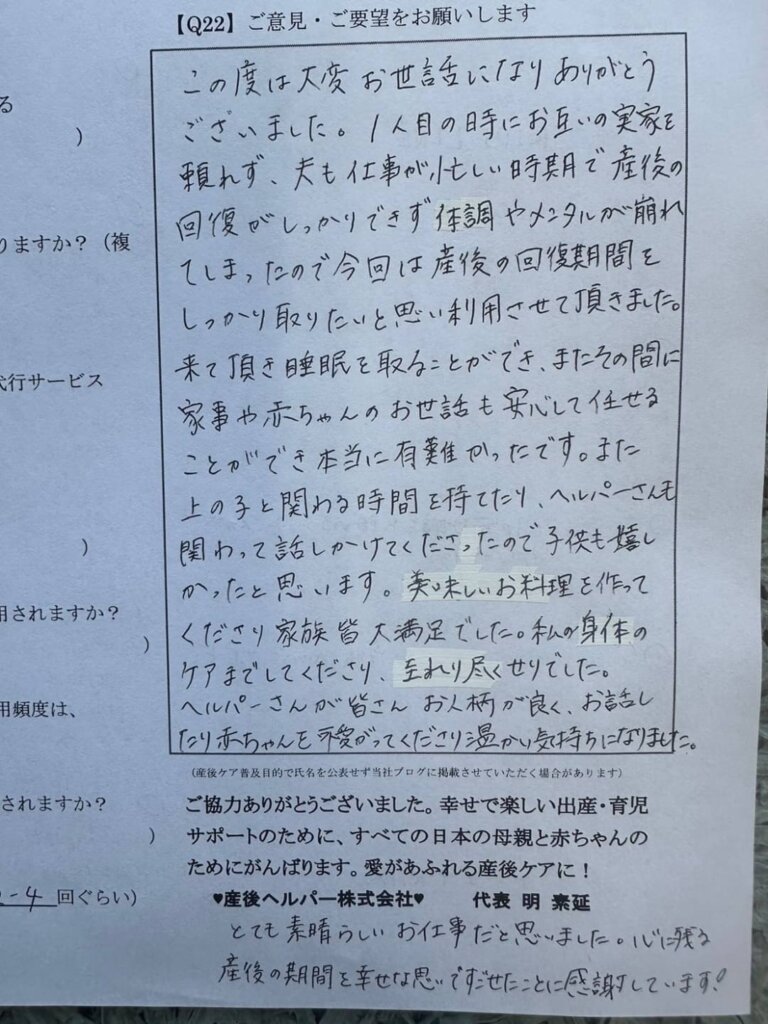 【Q22】ご意見・ご要望をお願いします
この度は大変お世話になりありがとう
ございました。1人目の時にお互いの実家を
頼れず、夫も仕事が忙しい時期で産後の
回復がしっかりできず体調やメンタルが崩れ
てしまったので今回は産後の回復期間を
しっかり取りたいと思い利用させて頂きました。
来て頂き睡眠を取ることができ、またその間に
家事や赤ちゃんのお世話も安心して任せる
ことができ本当に有難かったです。また
上の子と関わる時間を持てたり、ヘルパーさんも
関わって話しかけてくださったので子供も嬉し
かったと思います。美味しいお料理を作って
くださり家族皆大満足でした。私の身体の
ケアまでしてくださり、至れり尽くせりでした。
ヘルパーさんが皆さんお人柄が良く、お話し
たり赤ちゃんを可愛がってくださり温かい気持ちになりました。
(産後ケア普及目的で氏名を公表せず当社ブログに掲載させていただく場合があります)
ご協力ありがとうございました。幸せで楽しい出産・育児
サポートのために、すべての日本の母親と赤ちゃんの
ためにがんばります。愛があふれる産後ケアに！
♥産後ヘルパー株式会社♥ 代表 明 素延
とても素晴らしいお仕事だと思いました。心に残る
産後の期間を幸せな思いですごせたことに感謝しています!
る
)
りますか？（複
代行サービス
)
用されますか？
)
用頻度は、
されますか？
)
2-4 回ぐらい)